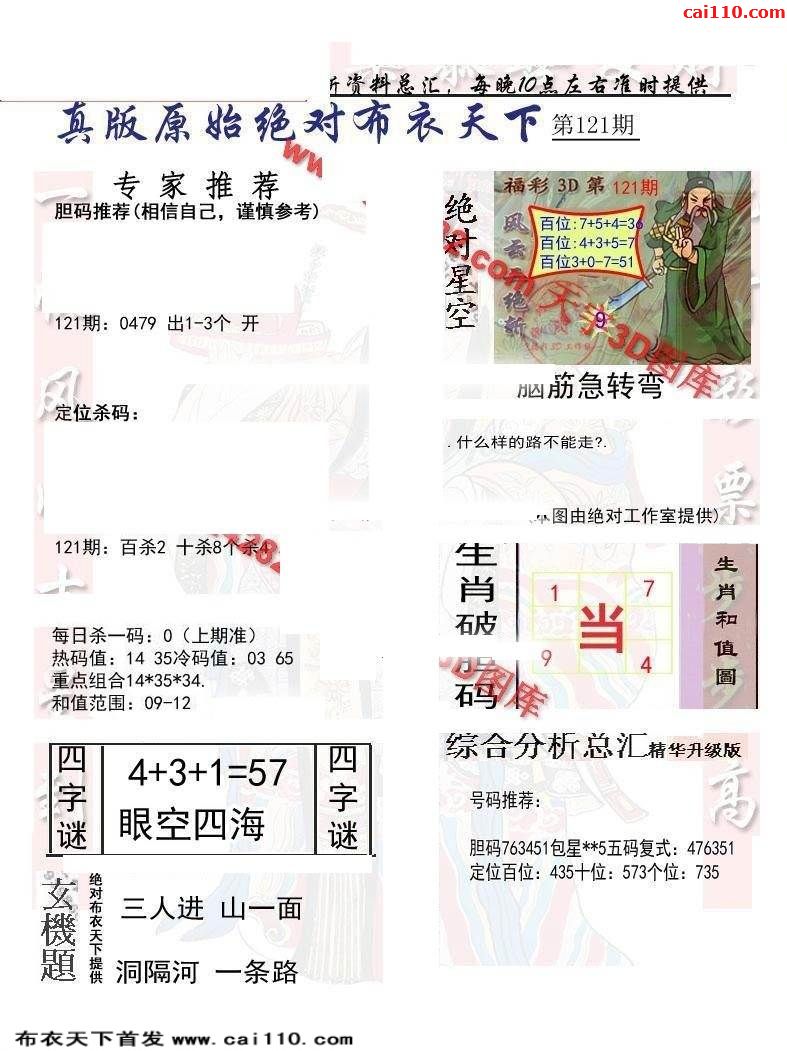 cai110.com
资料总汇，每晚10点左右准时提供
真版原始绝对布衣天下 第121期
专家推荐
胆码推荐(相信自己，谨慎参考)
121期：0479 出1-3个 开
定位杀码：
121期：百杀2 十杀8个杀4
每日杀一码：0（上期准）
热码值：14 35冷码值：03 65
重点组合14*35*34.
和值范围：09-12
四字谜
4+3+1=57
眼空四海
四字谜
玄機題
绝对布衣天下提供
三人进 山一面
洞隔河 一条路
绝对星空
福彩 3D 第 121期
百位:7+5+4=36
百位:4+3+5=7
百位3+0-7=51
9
天
3D图库
脑筋急转弯
.什么样的路不能走?.
图由绝对工作室提供)
生肖破胆码
1 7
当
9 4
3D图库
生肖和值圖
综合分析总汇精华升级版
号码推荐：
胆码763451包星**5五码复式：476351
定位百位：435十位：573个位：735
风
票
高
布衣天下首发 www.cai110.com